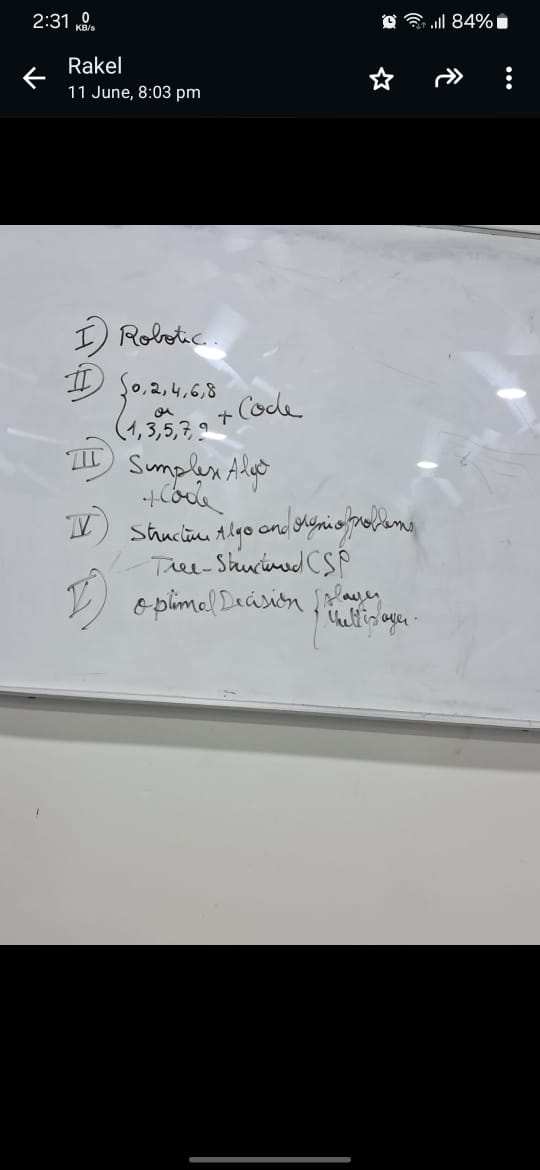 2:31 0 KB/s 84%
Rakel
11 June, 8:03 pm
I) Robotic.
II) {0,2,4,6,8
or + Code
1,3,5,7,9
III) Simplex Algo
+ Code
IV) Structure Algo and of problems
Tree-Structured CSP
V) Optimal Decision { player
Multiplayer.